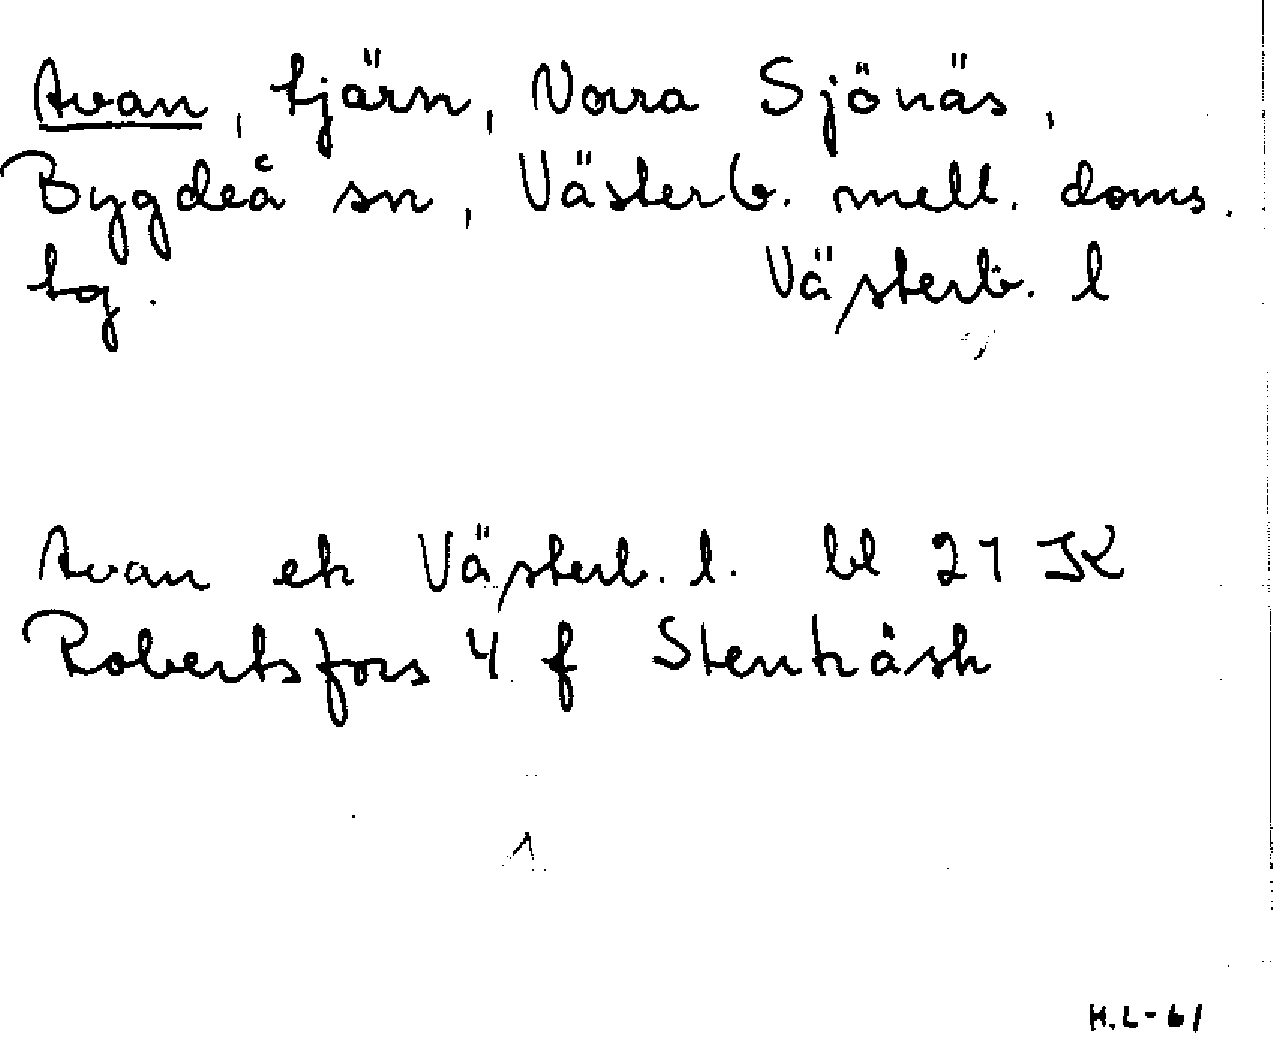 Avan, tjärn, Norra Sjönäs,
Bygdeå sn, Västerb. mell. doms.
tg. Västerb. l
Avan ek Västerb. l. bl 21 JK
Robertsfors 4 f Stenträsk
H.L-61